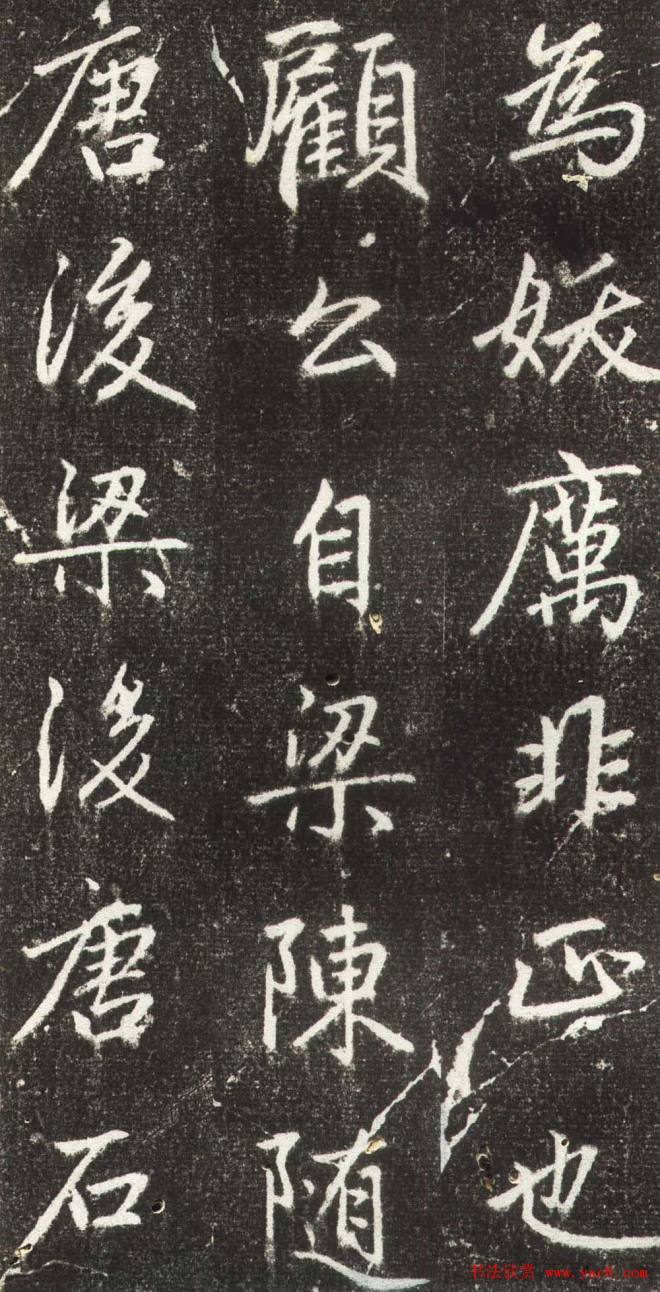 為妖厲非正也
顧公自梁陳随
唐後梁後唐石
书法欣赏 www.yac8.com